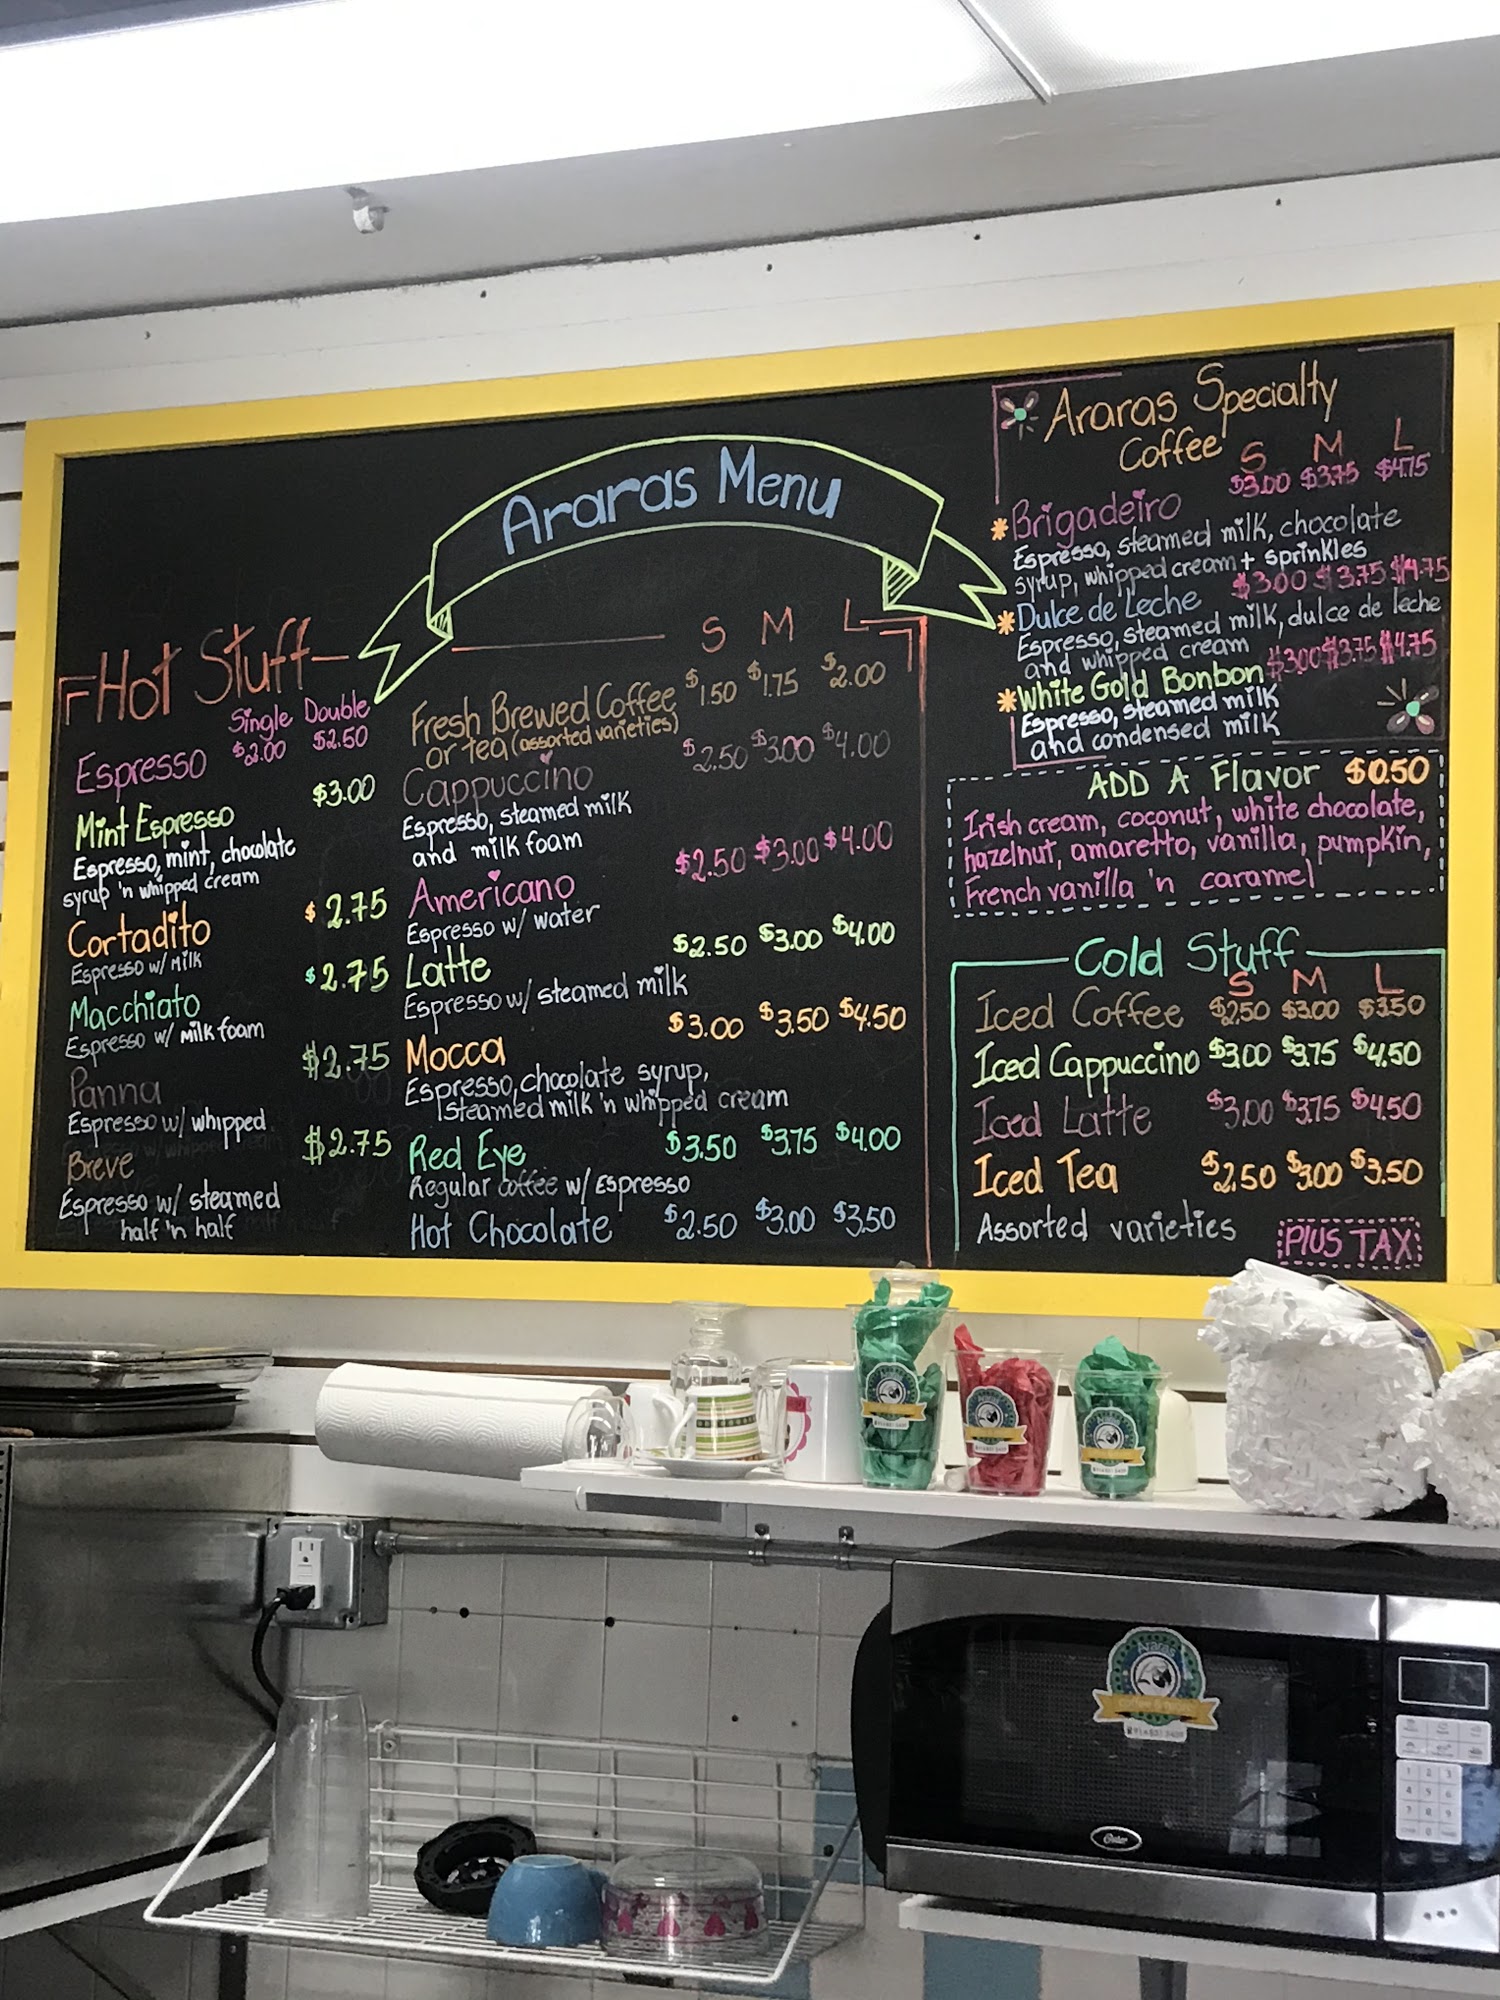 Araras Menu
Hot Stuff
Single Double
Espresso $2.00 $2.50
Mint Espresso $3.00
Espresso, mint, chocolate
syrup 'n whipped cream
Cortadito $2.75
Espresso w/ Milk
Macchiato $2.75
Espresso w/ Milk foam
Panna $2.75
Espresso w/ whipped
Breve $2.75
Espresso w/ steamed
half 'n half
S M L
Fresh Brewed Coffee $1.50 $1.75 $2.00
or tea (assorted varieties)
Cappuccino $2.50 $3.00 $4.00
Espresso, steamed milk
and milk foam
Americano $2.50 $3.00 $4.00
Espresso w/ water
Latte $2.50 $3.00 $4.00
Espresso w/ steamed milk
Mocca $3.00 $3.50 $4.50
Espresso, chocolate syrup,
steamed milk 'n whipped cream
Red Eye $3.50 $3.75 $4.00
Regular coffee w/ Espresso
Hot Chocolate $2.50 $3.00 $3.50
Araras Specialty
Coffee S M L
Brigadeiro $3.00 $3.75 $4.75
Espresso, steamed milk, chocolate
syrup, whipped cream + sprinkles
Dulce de Leche $3.00 $3.75 $4.75
Espresso, steamed milk, dulce de leche
and whipped cream
White Gold Bonbon $3.00 $3.75 $4.75
Espresso, steamed milk
and condensed milk
ADD A Flavor $0.50
Irish cream, coconut, white chocolate,
hazelnut, amaretto, vanilla, pumpkin,
French vanilla 'n caramel
Cold Stuff
S M L
Iced Coffee $2.50 $3.00 $3.50
Iced Cappuccino $3.00 $3.75 $4.50
Iced Latte $3.00 $3.75 $4.50
Iced Tea $2.50 $3.00 $3.50
Assorted varieties
PlUS TAX
Araras
Oster